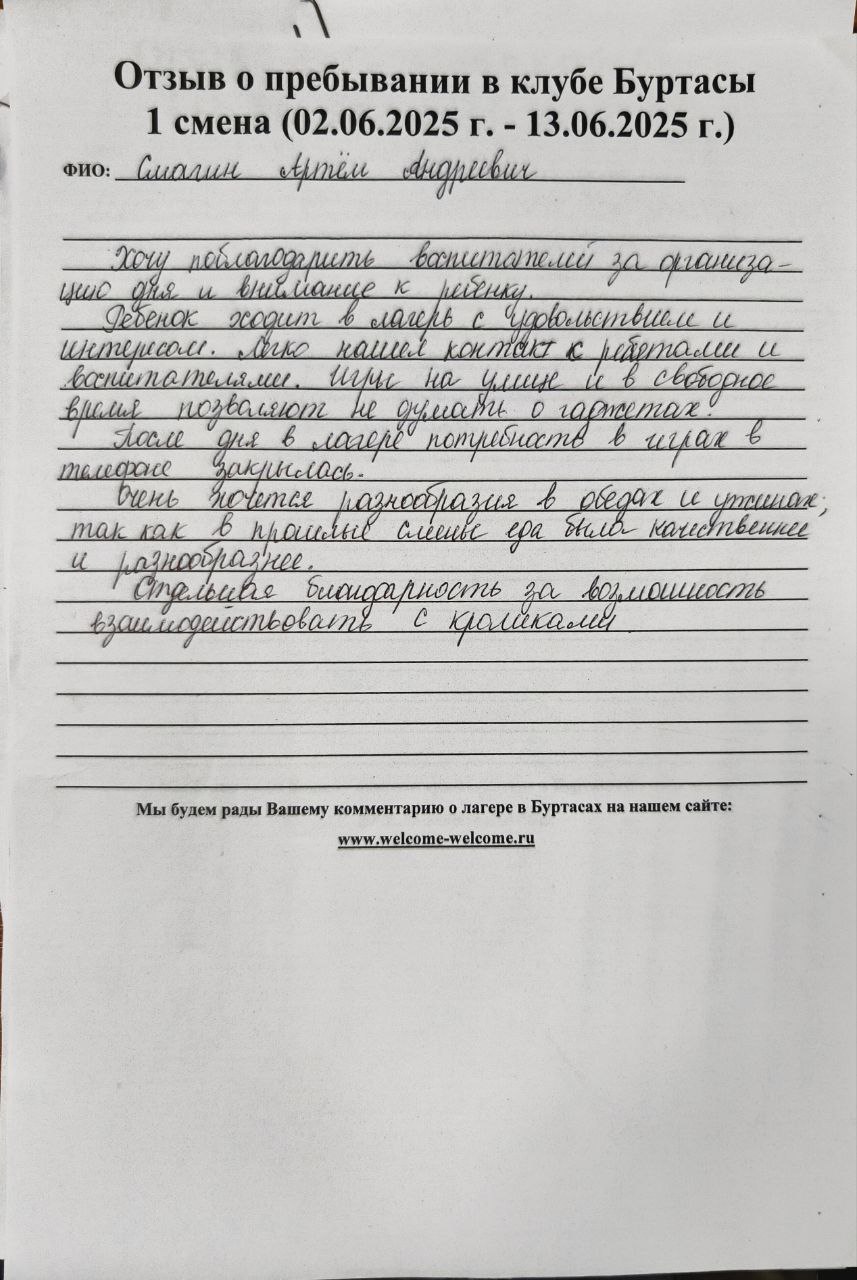 Отзыв о пребывании в клубе Буртасы
1 смена (02.06.2025 г. - 13.06.2025 г.)
ФИО: Смагин Артём Андреевич
Хочу поблагодарить воспитателей за организа-
цию дня и внимание к ребенку.
Ребенок ходит в лагерь с удовольствием и
интересом. Легко нашел контакт с ребятами и
воспитателями. Игры на улице и в свободное
время позволяют не думать о гаджетах.
После дня в лагере потребность в играх в
телефоне закрылась.
Очень хочется разнообразия в обедах и ужинах,
так как в прошлые смены еда была качественнее
и разнообразнее.
Отдельная благодарность за возможность
взаимодействовать с кроликами.
Мы будем рады Вашему комментарию о лагере в Буртасах на нашем сайте:
www.welcome-welcome.ru